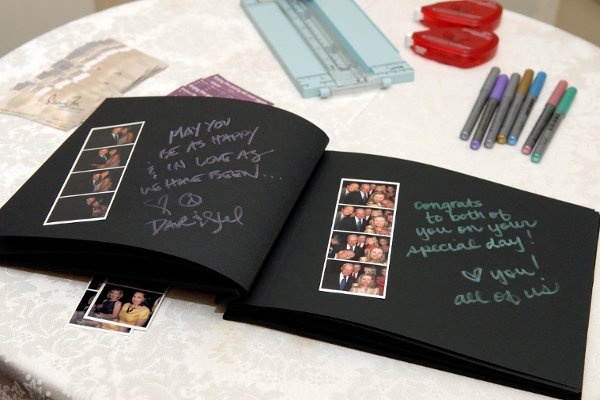 MAY YOU
BE AS HAPPY
& IN LOVE AS
WE HAVE BEEN...
congrats
to both of
you on your
special day!
♡ you!
all of us